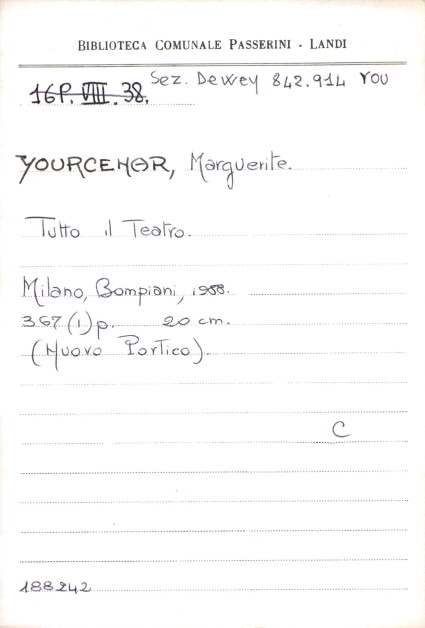 BIBLIOTECA COMUNALE PASSERINI - LANDI
Sez. Dewey 842.914 YOU
16P. VIII. 38.
YOURCENAR, Marguerite.
Tutto il Teatro.
Milano, Bompiani, 1988.
367 (1) p. 20 cm.
(Nuovo Portico).
C
188242